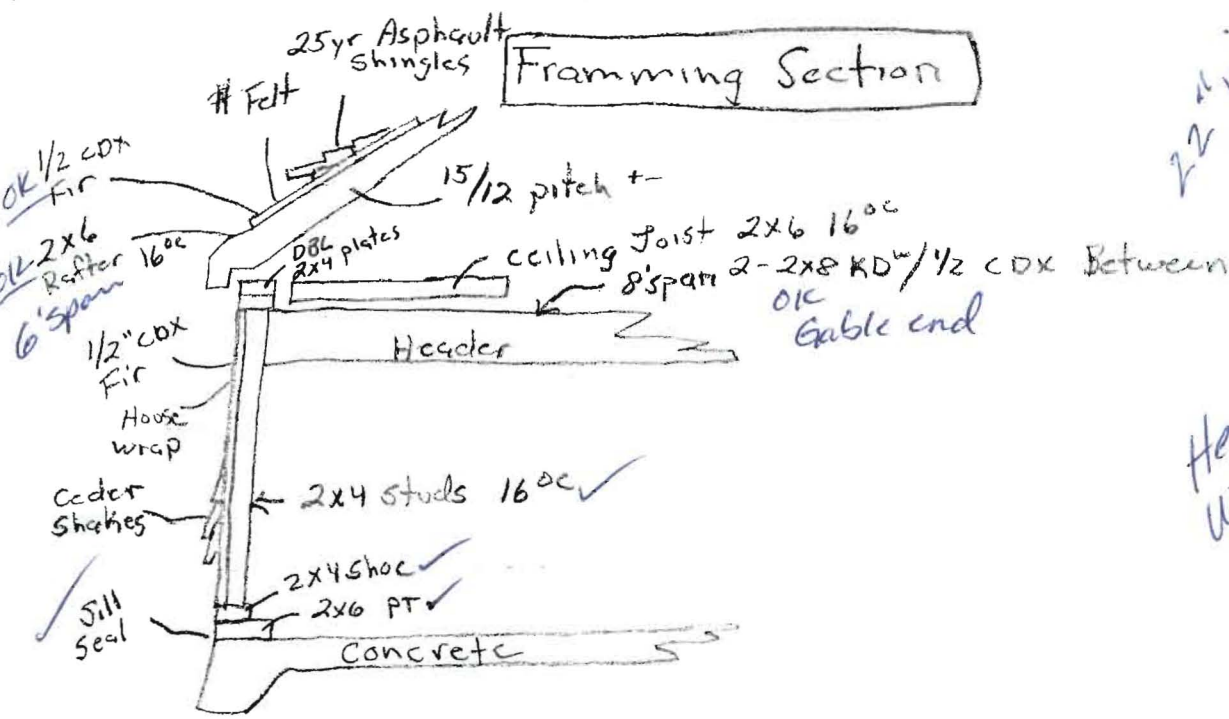 25yr Asphault
Shingles
Framming Section
# Felt
OK 1/2 CDX
Fir
15/12 pitch +-
OK 2x6
Rafter 16"oc
6'span
DBL
2x4 plates
ceiling Joist 2x6 16"oc
8'span 2-2x8 KD w/ 1/2 CDX Between
OK
Gable end
Header
1/2" CDX
Fir
House
wrap
2x4 Studs 16"oc
Ceder
Shakes
2x4 Shoe
2x6 PT
Sill
Seal
Concrete